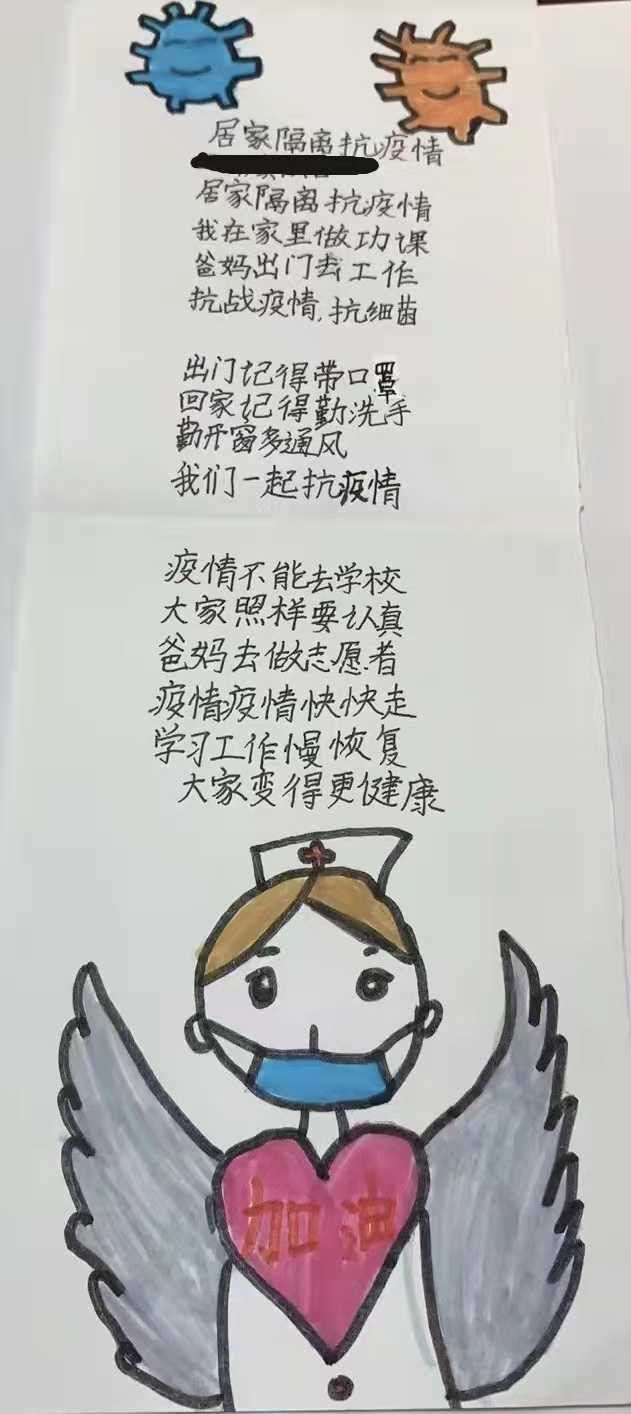 居家隔离抗疫情
居家隔离抗疫情
我在家里做功课
爸妈出门去工作
抗战疫情,抗细菌
出门记得带口罩
回家记得勤洗手
勤开窗多通风
我们一起抗疫情
疫情不能去学校
大家照样要认真
爸妈去做志愿者
疫情疫情快快走
学习工作慢恢复
大家变得更健康
加油